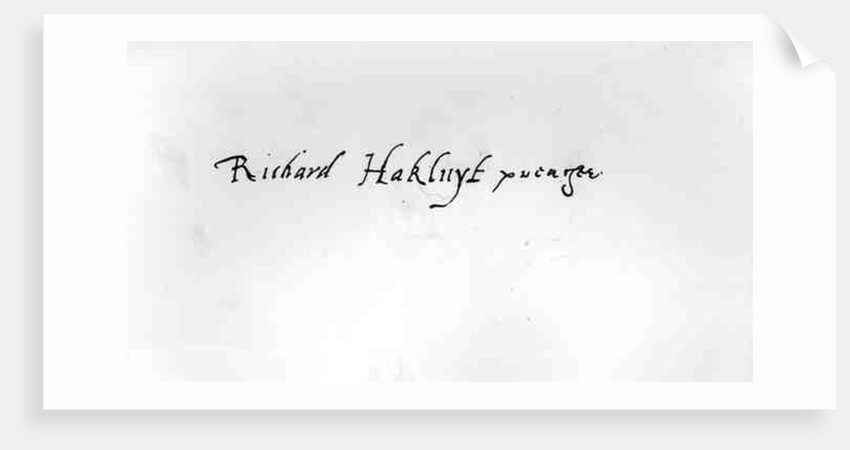 Richard Hakluyt preacher.